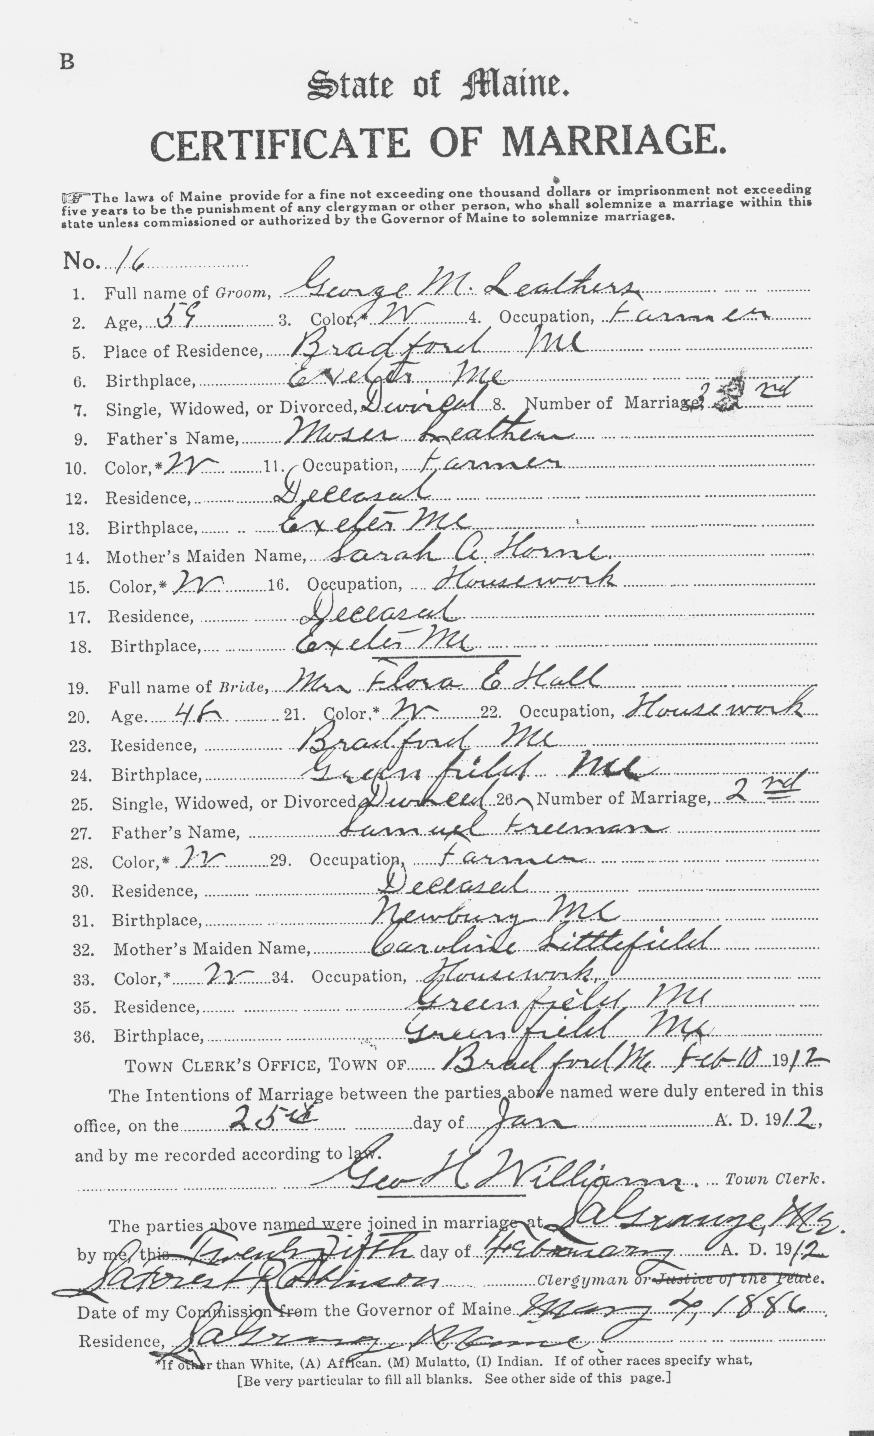 B
State of Maine.
CERTIFICATE OF MARRIAGE.
☞The laws of Maine provide for a fine not exceeding one thousand dollars or imprisonment not exceeding
five years to be the punishment of any clergyman or other person, who shall solemnize a marriage within this
state unless commissioned or authorized by the Governor of Maine to solemnize marriages.
No. 16
1. Full name of Groom, George M. Leathers
2. Age, 59 3. Color,* W 4. Occupation, Farmer
5. Place of Residence, Bradford Me
6. Birthplace, Exeter Me
7. Single, Widowed, or Divorced, Divorced 8. Number of Marriage, nd
9. Father's Name, Moses Leathers
10. Color,* W 11. Occupation, Farmer
12. Residence, Deceased
13. Birthplace, Exeter Me
14. Mother's Maiden Name, Sarah A. Horne.
15. Color,* W 16. Occupation, Housework
17. Residence, Deceased
18. Birthplace, Exeter Me
19. Full name of Bride, Mrs Flora E Hall
20. Age. 48 21. Color.* W 22. Occupation, Housework
23. Residence, Bradford Me
24. Birthplace, Greenfield Me
25. Single, Widowed, or Divorced, Divorced 26. Number of Marriage, 2nd
27. Father's Name, Samuel Freeman
28. Color,* W 29. Occupation, Farmer
30. Residence, Deceased
31. Birthplace, Newbury Me
32. Mother's Maiden Name, Caroline Littlefield
33. Color,* W 34. Occupation, Housework,
35. Residence, Greenfield Me
36. Birthplace, Greenfield Me
TOWN CLERK'S OFFICE, TOWN OF Bradford Me Feb 10 1912
The Intentions of Marriage between the parties above named were duly entered in this
office, on the 25th day of Jan A. D. 1912,
and by me recorded according to law.
Geo H Williams. Town Clerk.
The parties above named were joined in marriage at LaGrange, Me.
by me, this Twenty fifth day of February A. D. 1912
Robinson Clergyman or Justice of the Peace.
Date of my Commission from the Governor of Maine May 4, 1886
Residence, LaGrange, Maine
*If other than White, (A) African. (M) Mulatto, (I) Indian. If of other races specify what,
[Be very particular to fill all blanks. See other side of this page.]